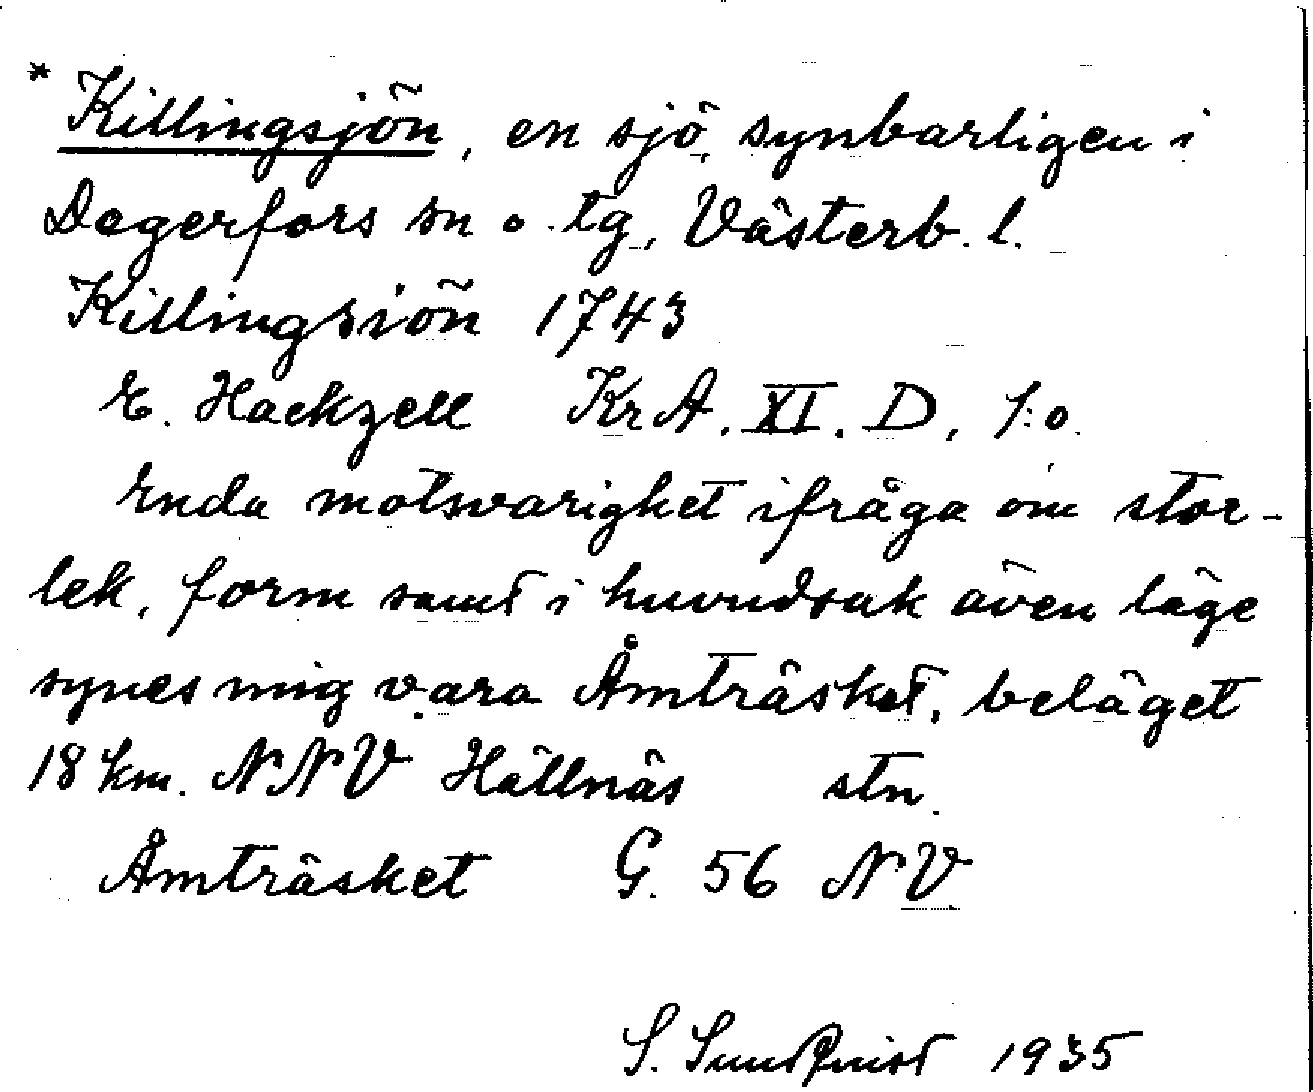 * Killingsjön, en sjö, synbarligen i
Degerfors sn o. tg, Västerb. l.
Killingsiön 1743
E. Hackzell KrA. XI. D. 1:o.
Enda motsvarighet ifråga om stor-
lek, form samt i huvudsak även läge
synes mig vara Åmträsket, beläget
18 km. NNV Hällnäs stn.
Åmträsket G. 56 NV
S. Sundquist 1935